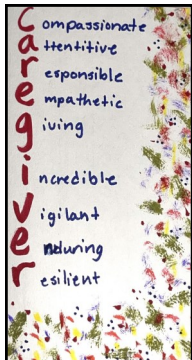 Compassionate
attentitive
responsible
empathetic
giving
incredible
vigilant
enduring
resilient